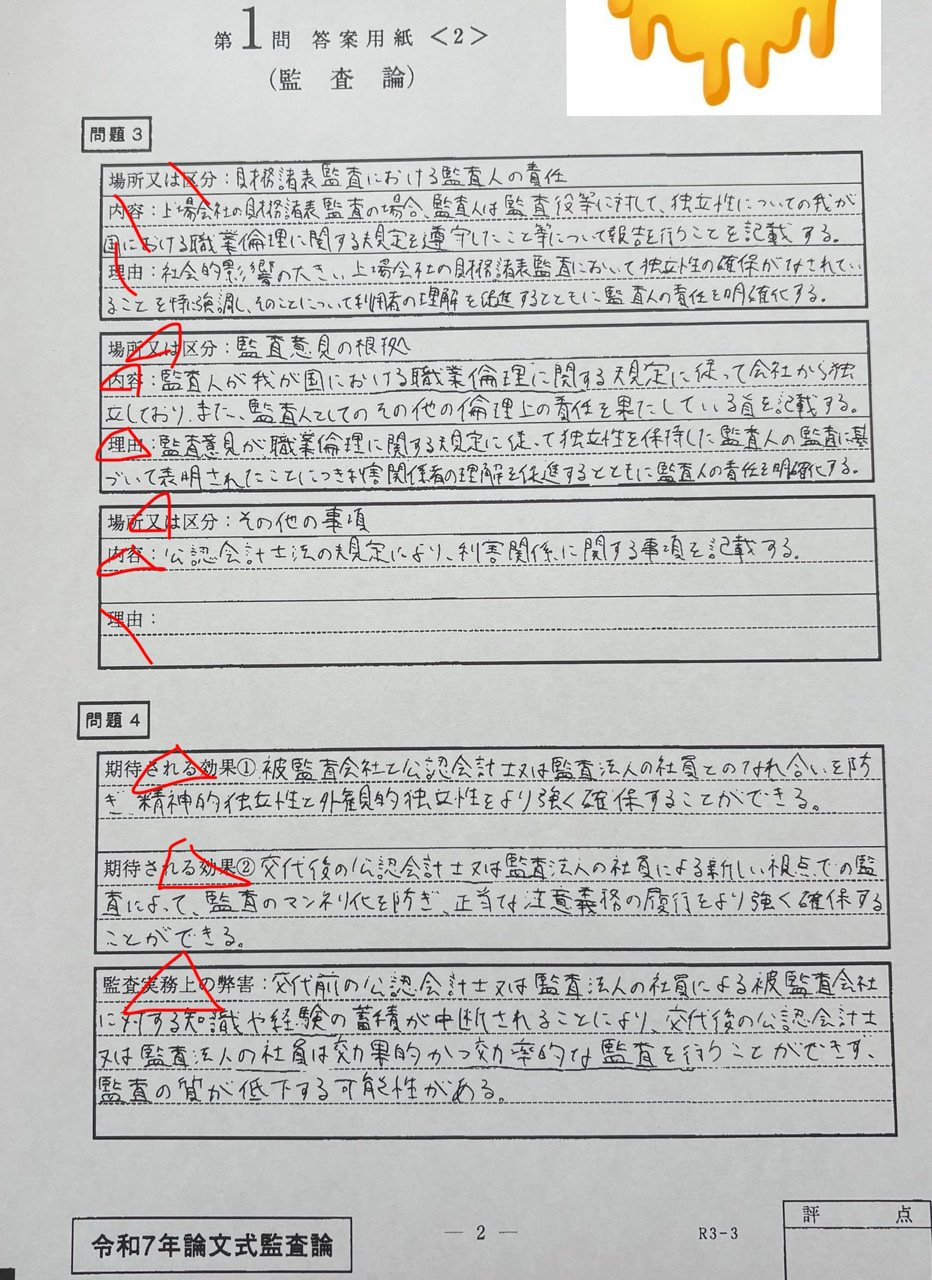 第1問 答案用紙<2>
(監査論)
問題3
場所又は区分:財務諸表監査における監査人の責任
内容:上場会社の財務諸表監査の場合、監査人は監査役等に対して、独立性についての我が
国における職業倫理に関する規定を遵守したこと等について報告を行うことを記載する。
理由:社会的影響の大きい上場会社の財務諸表監査において独立性の確保がなされてい
ることを特に強調し、そのことについて利用者の理解を促進するとともに監査人の責任を明確化する。
場所又は区分:監査意見の根拠
内容:監査人が我が国における職業倫理に関する規定に従って会社から独
立しており、また、監査人としてのその他の倫理上の責任を果たしている旨を記載する。
理由:監査意見が職業倫理に関する規定に従って独立性を保持した監査人の監査に基
づいて表明されたことにつき利害関係者の理解を促進するとともに監査人の責任を明確化する。
場所又は区分:その他の事項
内容:公認会計士法の規定により、利害関係に関する事項を記載する。
理由:
問題4
期待される効果①被監査会社と公認会計士又は監査法人の社員とのなれ合いを防
ぎ、精神的独立性と外観的独立性をより強く確保することができる。
期待される効果②交代後の公認会計士又は監査法人の社員による新しい視点での監
査によって、監査のマンネリ化を防ぎ、正当な注意義務の履行をより強く確保する
ことができる。
監査実務上の弊害:交代前の公認会計士又は監査法人の社員による被監査会社
に対する知識や経験の蓄積が中断されることにより、交代後の公認会計士
又は監査法人の社員は効果的かつ効率的な監査を行うことができず、
監査の質が低下する可能性がある。
令和7年論文式監査論
— 2 —
R3-3
評点